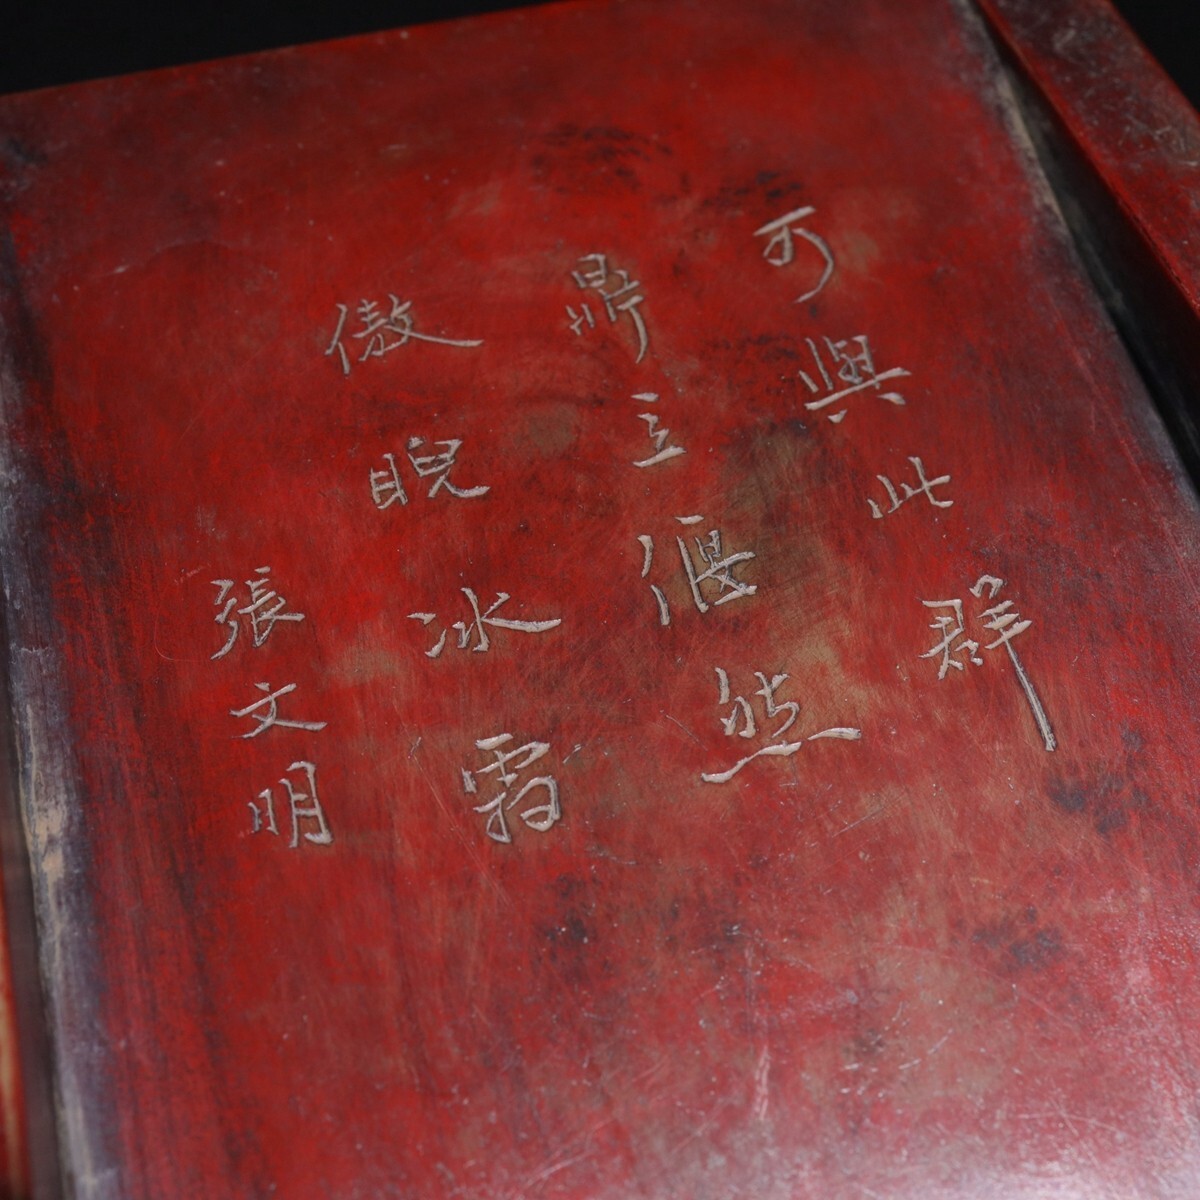 可與此群
鼎立偃然
傲睨冰霜
張文明